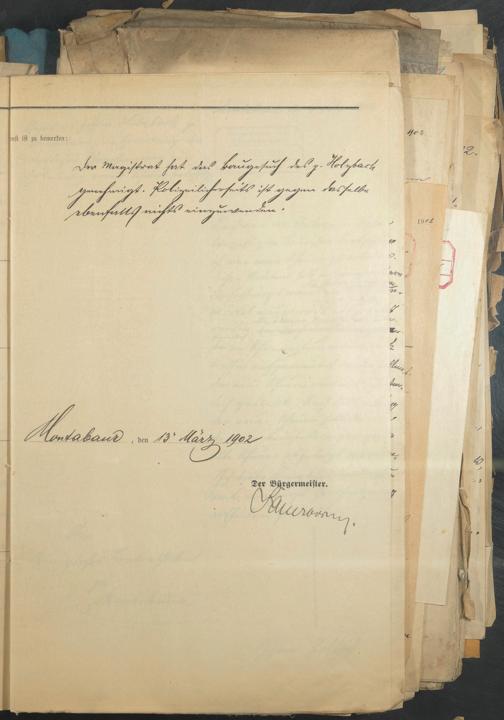 ist zu bemerken:
Der Magistrat hat das Baugesuch des p. Holzbach
genehmigt. Polizeilicherseits ist gegen dasselbe
ebenfalls nichts einzuwenden.
Montabaur, den 13ᵗ März 1902
Der Bürgermeister.